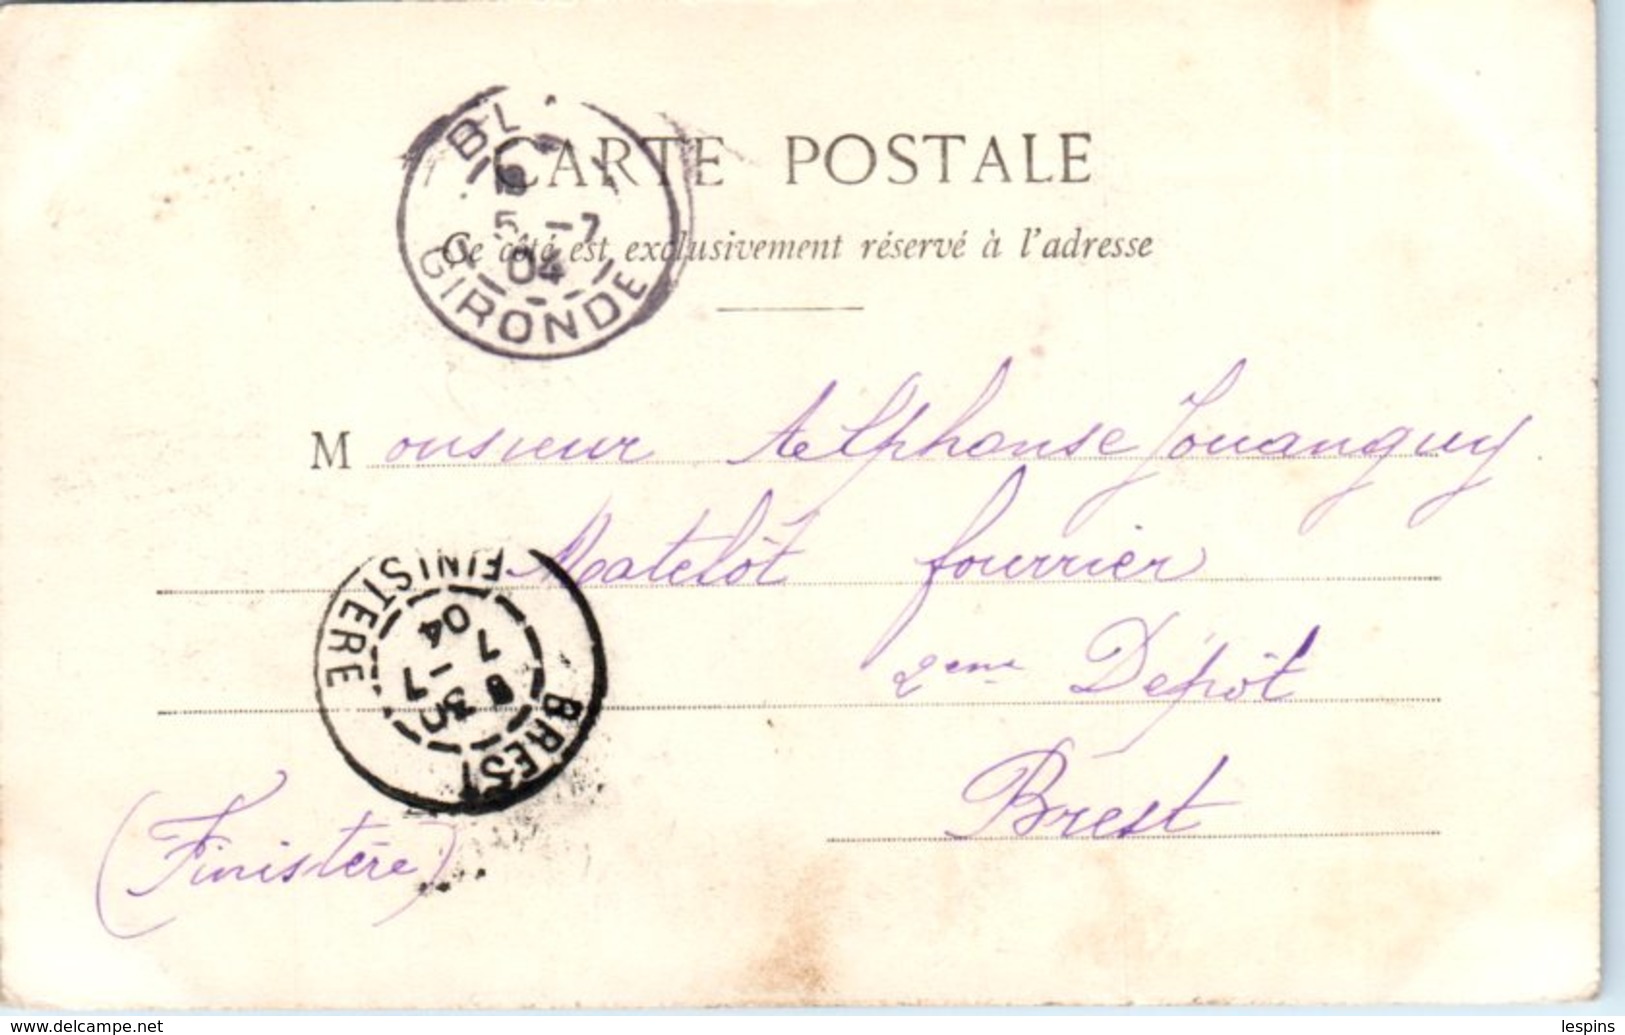 CARTE POSTALE
Ce côté est exclusivement réservé à l'adresse
BL
5 -7
04
GIRONDE
Monsieur Alphonse Jouanguy
Matelôt fourrier
2eme Dépôt
Brest
(Finistère)
BREST
30
7 -7
04
FINISTERE
www.delcampe.net
lespins